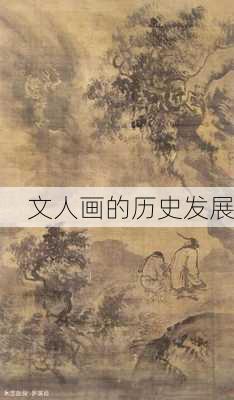 文人画的历史发展